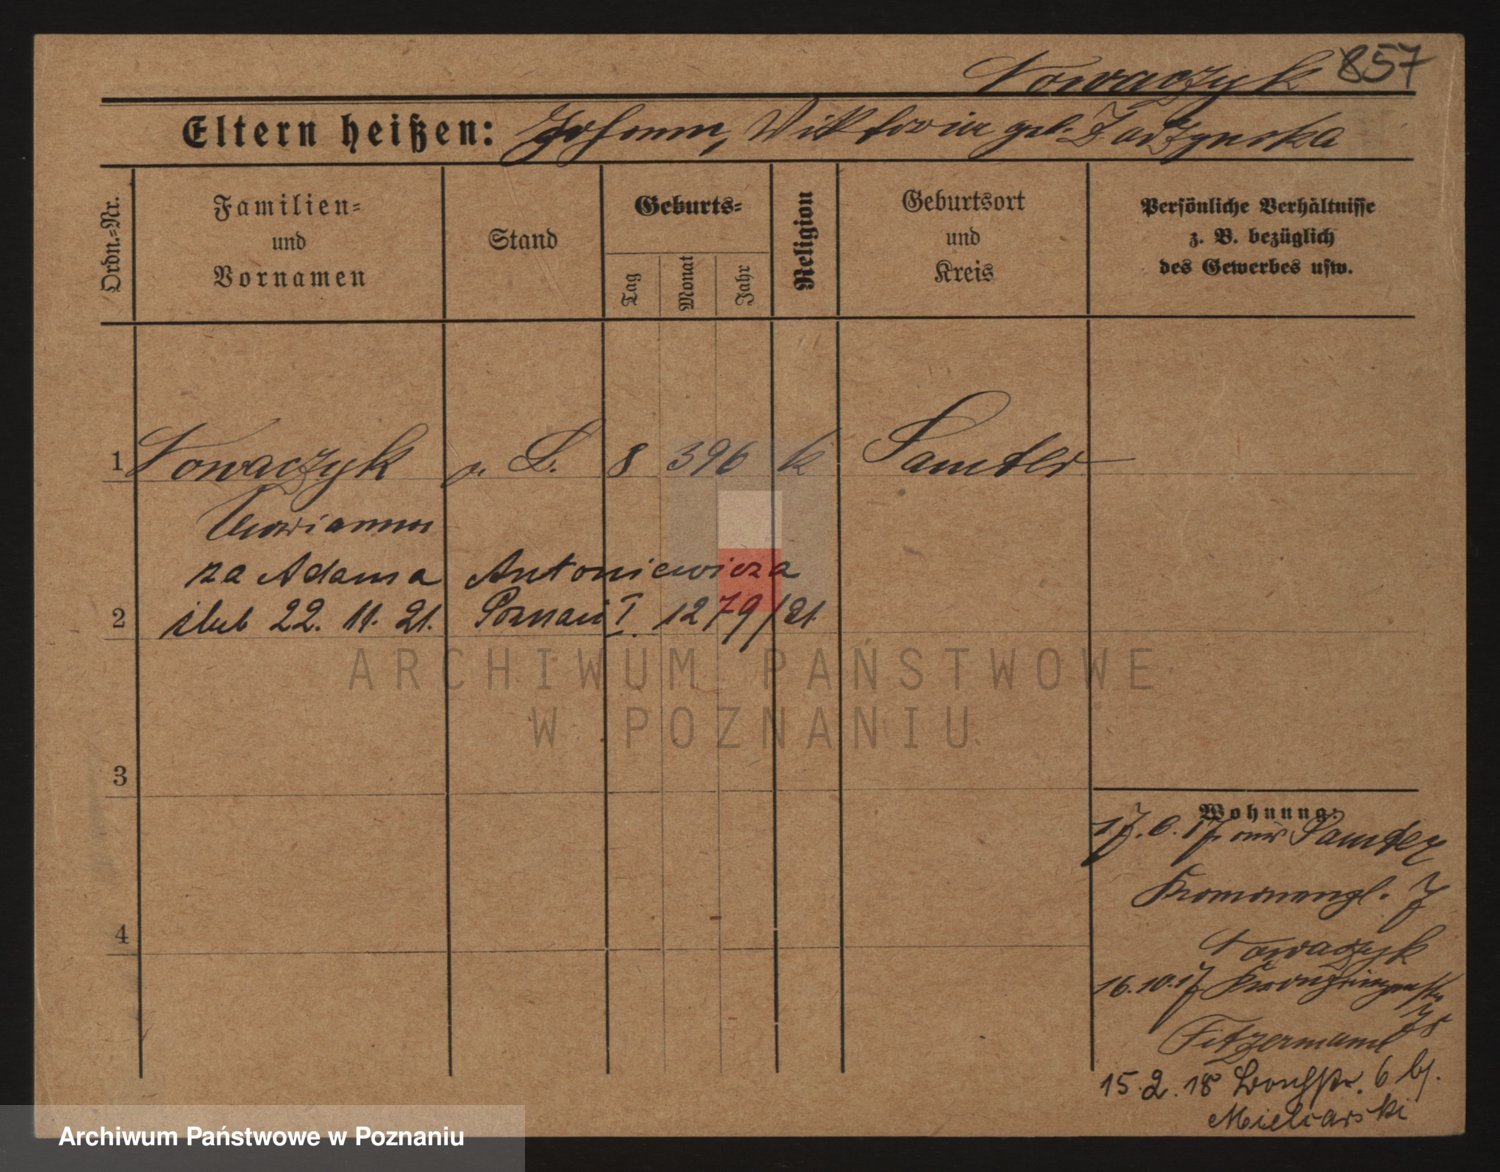 Nowaczyk 857
Eltern heißen: Johann, Viktoria geb.
Ordn.=Nr.
Familien=
und
Vornamen
Stand
Geburts=
Tag
Monat
Jahr
Religion
Geburtsort
und
Kreis
Persönliche Verhältnisse
z. B. bezüglich
des Gewerbes usw.
1 Nowaczyk 8 396 k Samter
Marianna
za Adama Antoniewicza
2 ślub 22. 11. 21. Poznań I. 1279/21.
ARCHIWUM PAŃSTWOWE
W POZNANIU
3
4
Wohnung:
17. 6. 17. aus Samter
7
Nowaczyk
16.10.17 Kronprinzenstr.
78
Fitzermann
15.2.18 6 bj.
Mielcarski
Archiwum Państwowe w Poznaniu